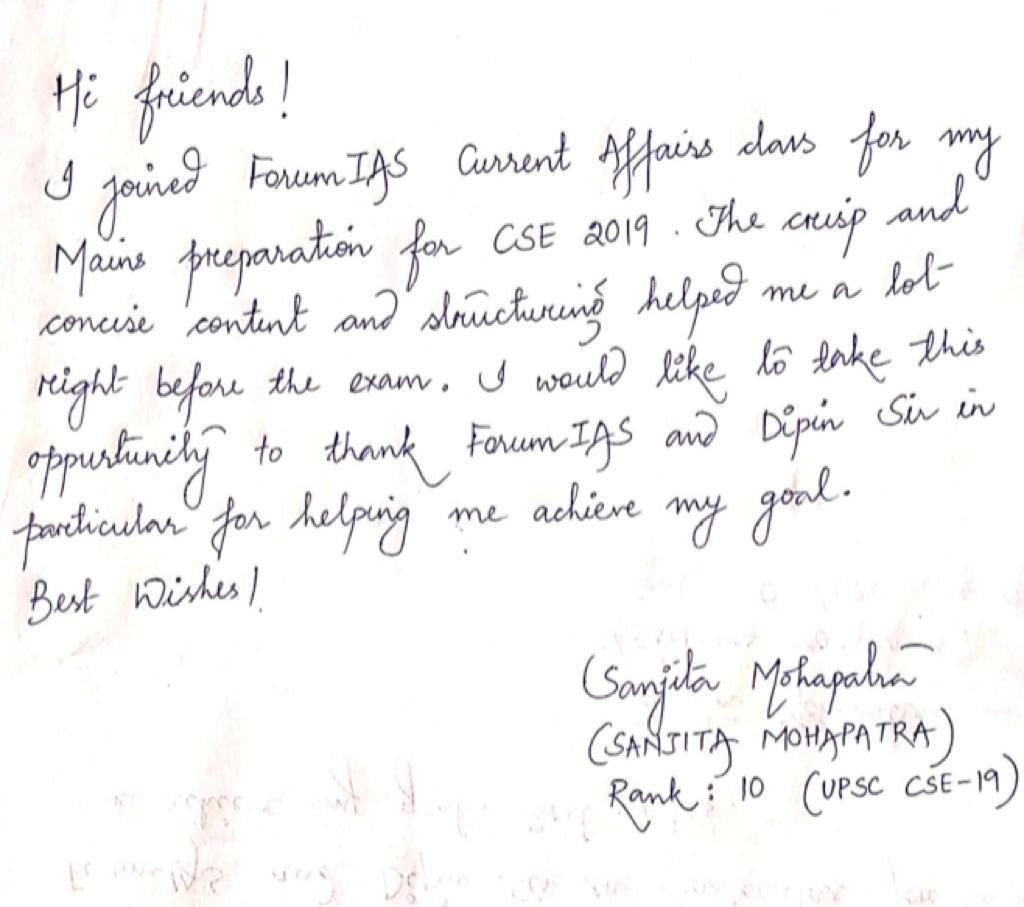 Hi friends!
I joined ForumIAS Current Affairs class for my
Mains preparation for CSE 2019. The crisp and
concise content and structuring helped me a lot
right before the exam. I would like to take this
oppurtunity to thank ForumIAS and Dipin Sir in
particular for helping me achieve my goal.
Best Wishes!
Sanjita Mohapatra
(SANJITA MOHAPATRA)
Rank: 10 (UPSC CSE-19)